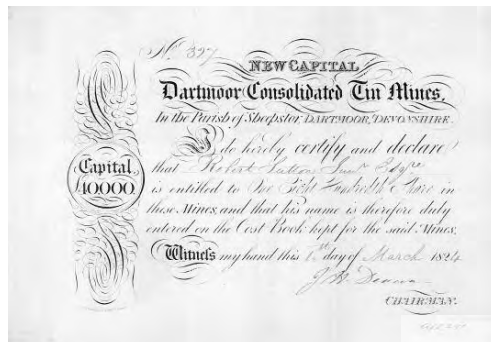 No. 397
NEW CAPITAL
Dartmoor Consolidated Tin Mines,
In the Parish of Sheepstor, DARTMOOR, DEVONSHIRE.
I do hereby certify and declare
that Robert Sutton Junr. Esqre
is entitled to One Eight Hundredth Share in
these Mines, and that his name is therefore duly
entered on the Cost Book kept for the said Mines.
Witness my hand this day of March 1824
CHAIRMAN.
Capital
40,000